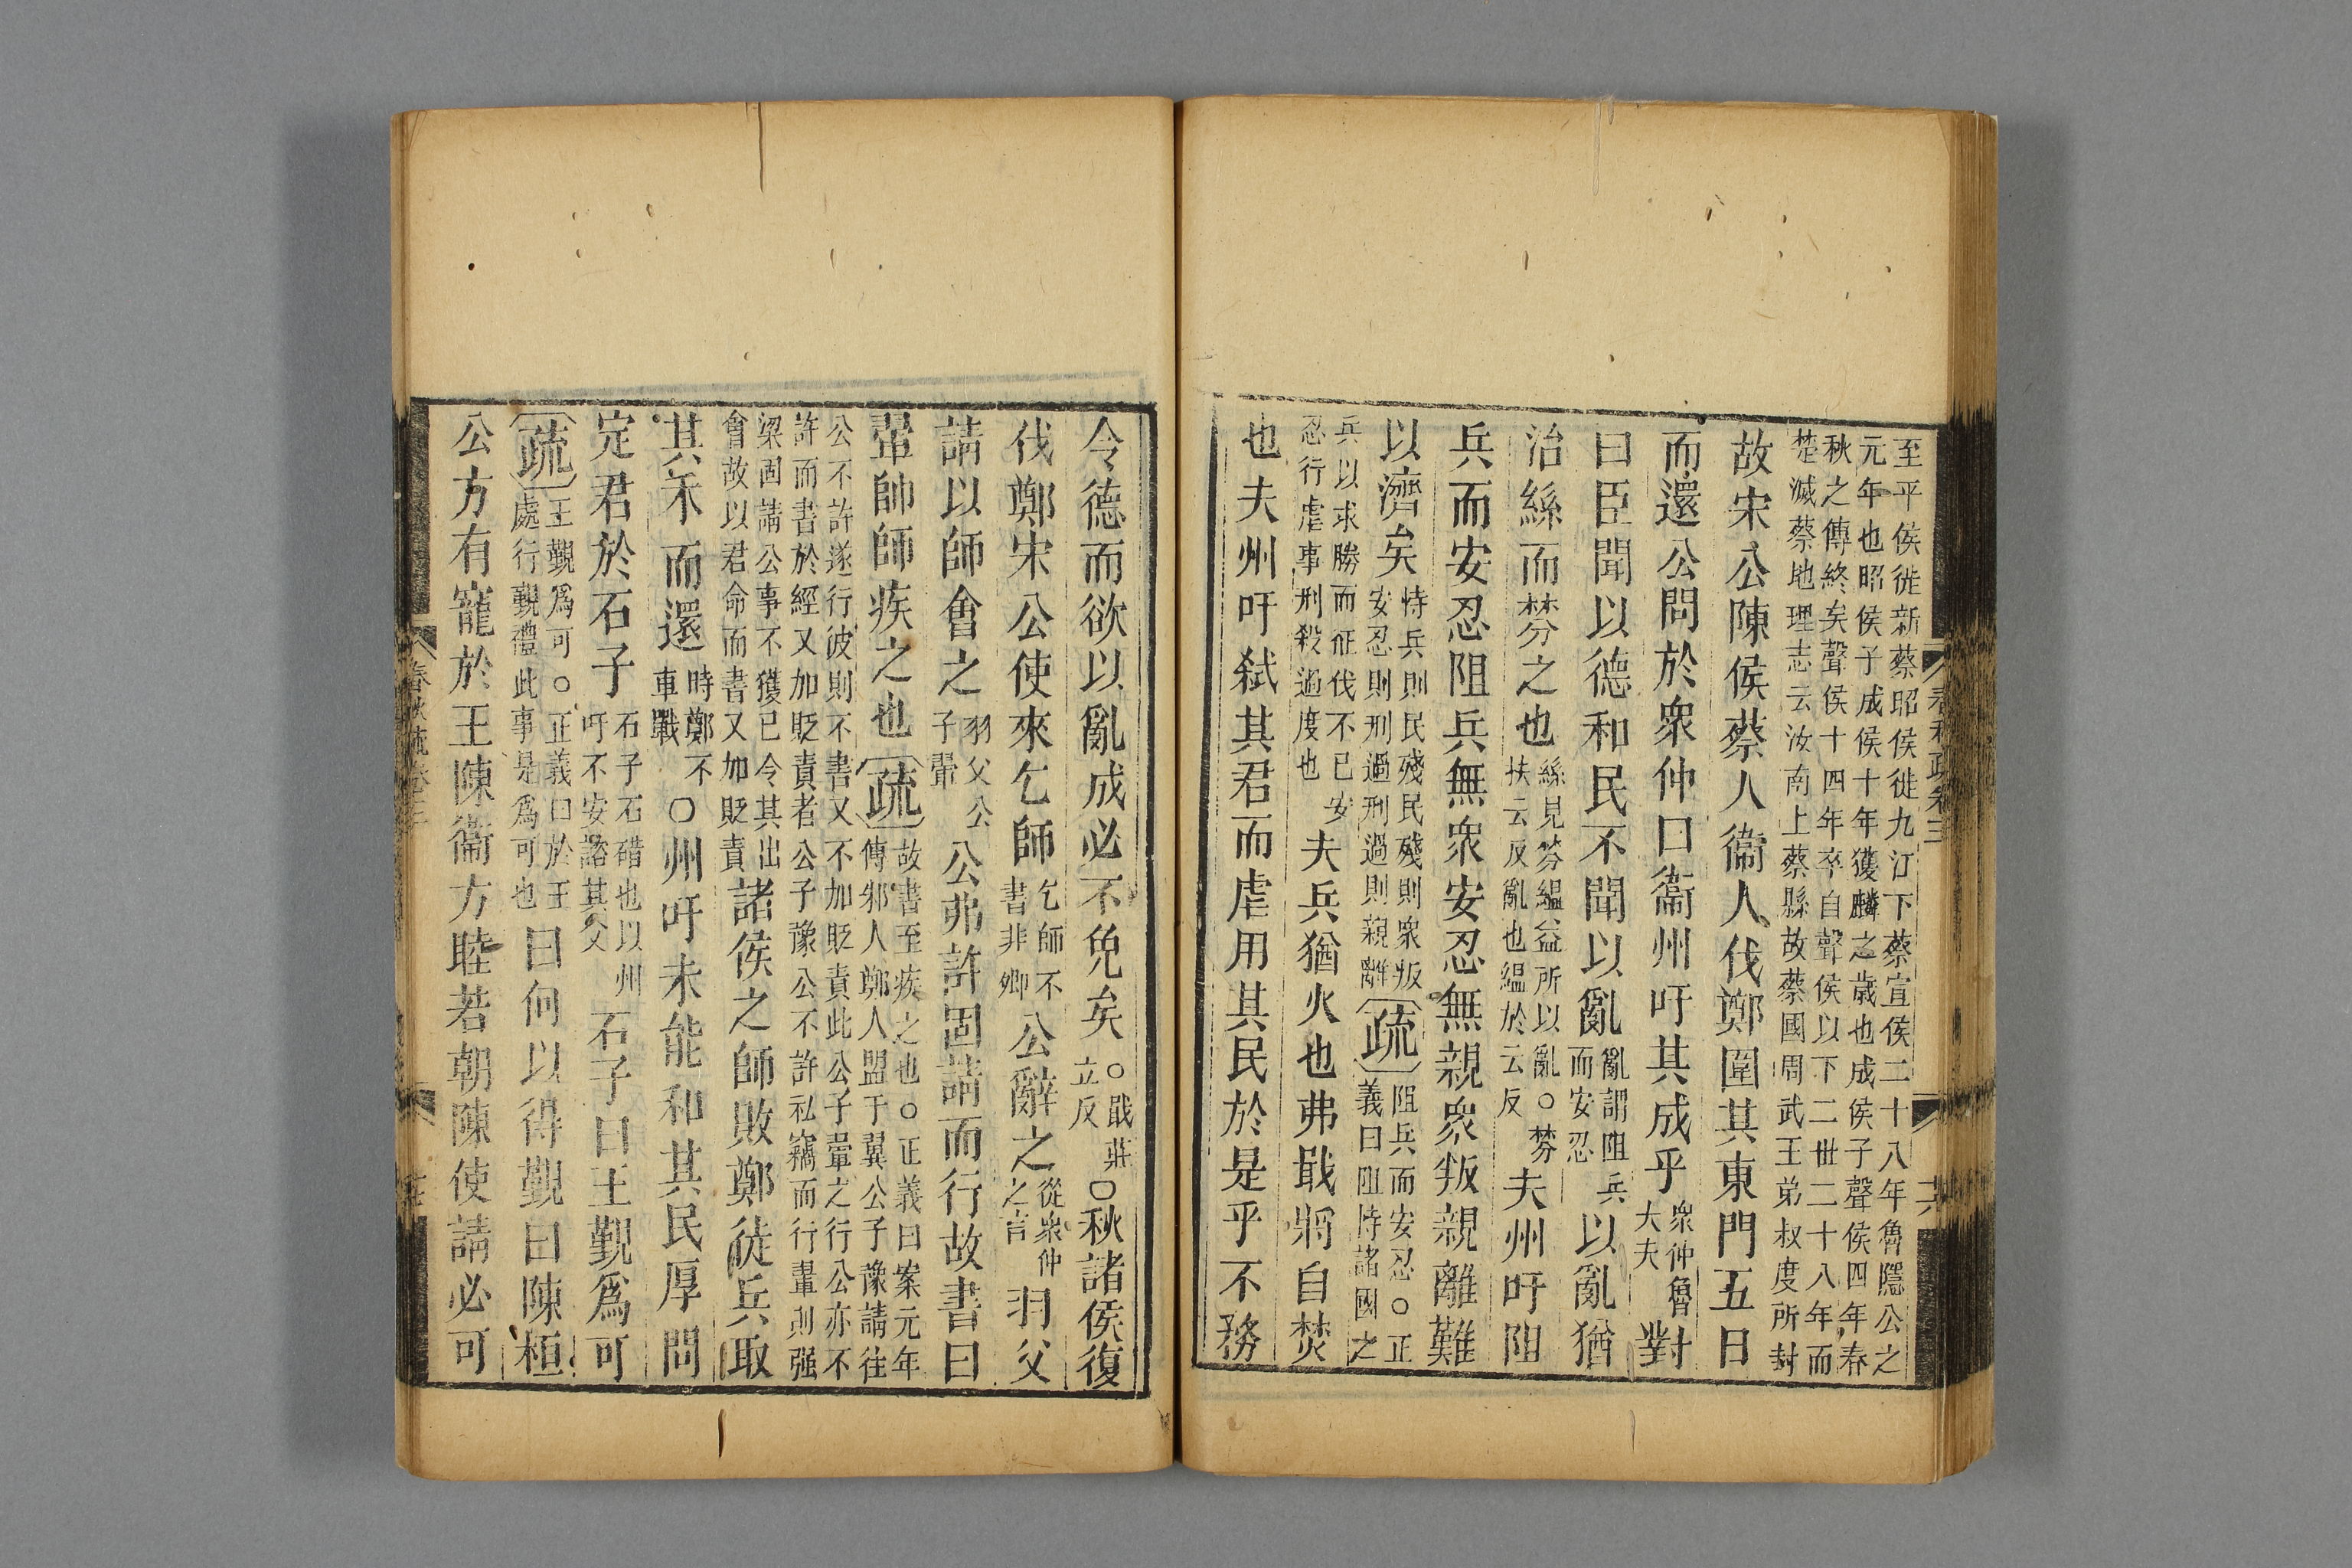 至平侯徙新蔡昭侯徙九江下蔡宣侯二十八年魯隱公之
元年也昭侯子成侯十年獲麟之歲也成侯子聲侯四年春
秋之傳終矣聲侯十四年卒自聲侯以下二世二十八年而
楚滅蔡地理志云汝南上蔡縣故蔡國周武王弟叔度所封
故宋公陳侯蔡人衞人伐鄭圍其東門五日
而還公問於衆仲曰衞州吁其成乎衆仲魯大夫對
曰臣聞以德和民不聞以亂亂謂阻兵而安忍以亂猶
治絲而棼之也絲見棼緼益所以亂○棼扶云反亂也緼於云反夫州吁阻
兵而安忍阻兵無衆安忍無親衆叛親離難
以濟矣恃兵則民殘民殘則衆叛安忍則刑過刑過則親離疏阻兵而安忍○正義曰阻恃諸國之
兵以求勝而征伐不已安忍行虐事刑殺過度也夫兵猶火也弗戢將自焚
也夫州吁弑其君而虐用其民於是乎不務
春秋疏卷三
令德而欲以亂成必不免矣○戢莊立反○秋諸侯復
伐鄭宋公使來乞師乞師不書非卿公辭之從衆仲之言羽父
請以師會之羽父公子翬公弗許固請而行故書曰
翬帥師疾之也疏故書至疾之也○正義曰案元年傳邾人鄭人盟于翼公子豫請往
公不許遂行彼則不書又不加貶責此公子翬之行公亦不
許而書於經又加貶責者公子豫公不許私竊而行翬則强
梁固請公事不獲已令其出會故以君命而書又加貶責諸侯之師敗鄭徒兵取
其禾而還時鄭不車戰○州吁未能和其民厚問
定君於石子石子石碏也以州吁不安諮其父石子曰王覲爲可
疏王覲爲可○正義曰於王處行覲禮此事是爲可也曰何以得覲曰陳桓
公方有寵於王陳衞方睦若朝陳使請必可
春秋疏卷三